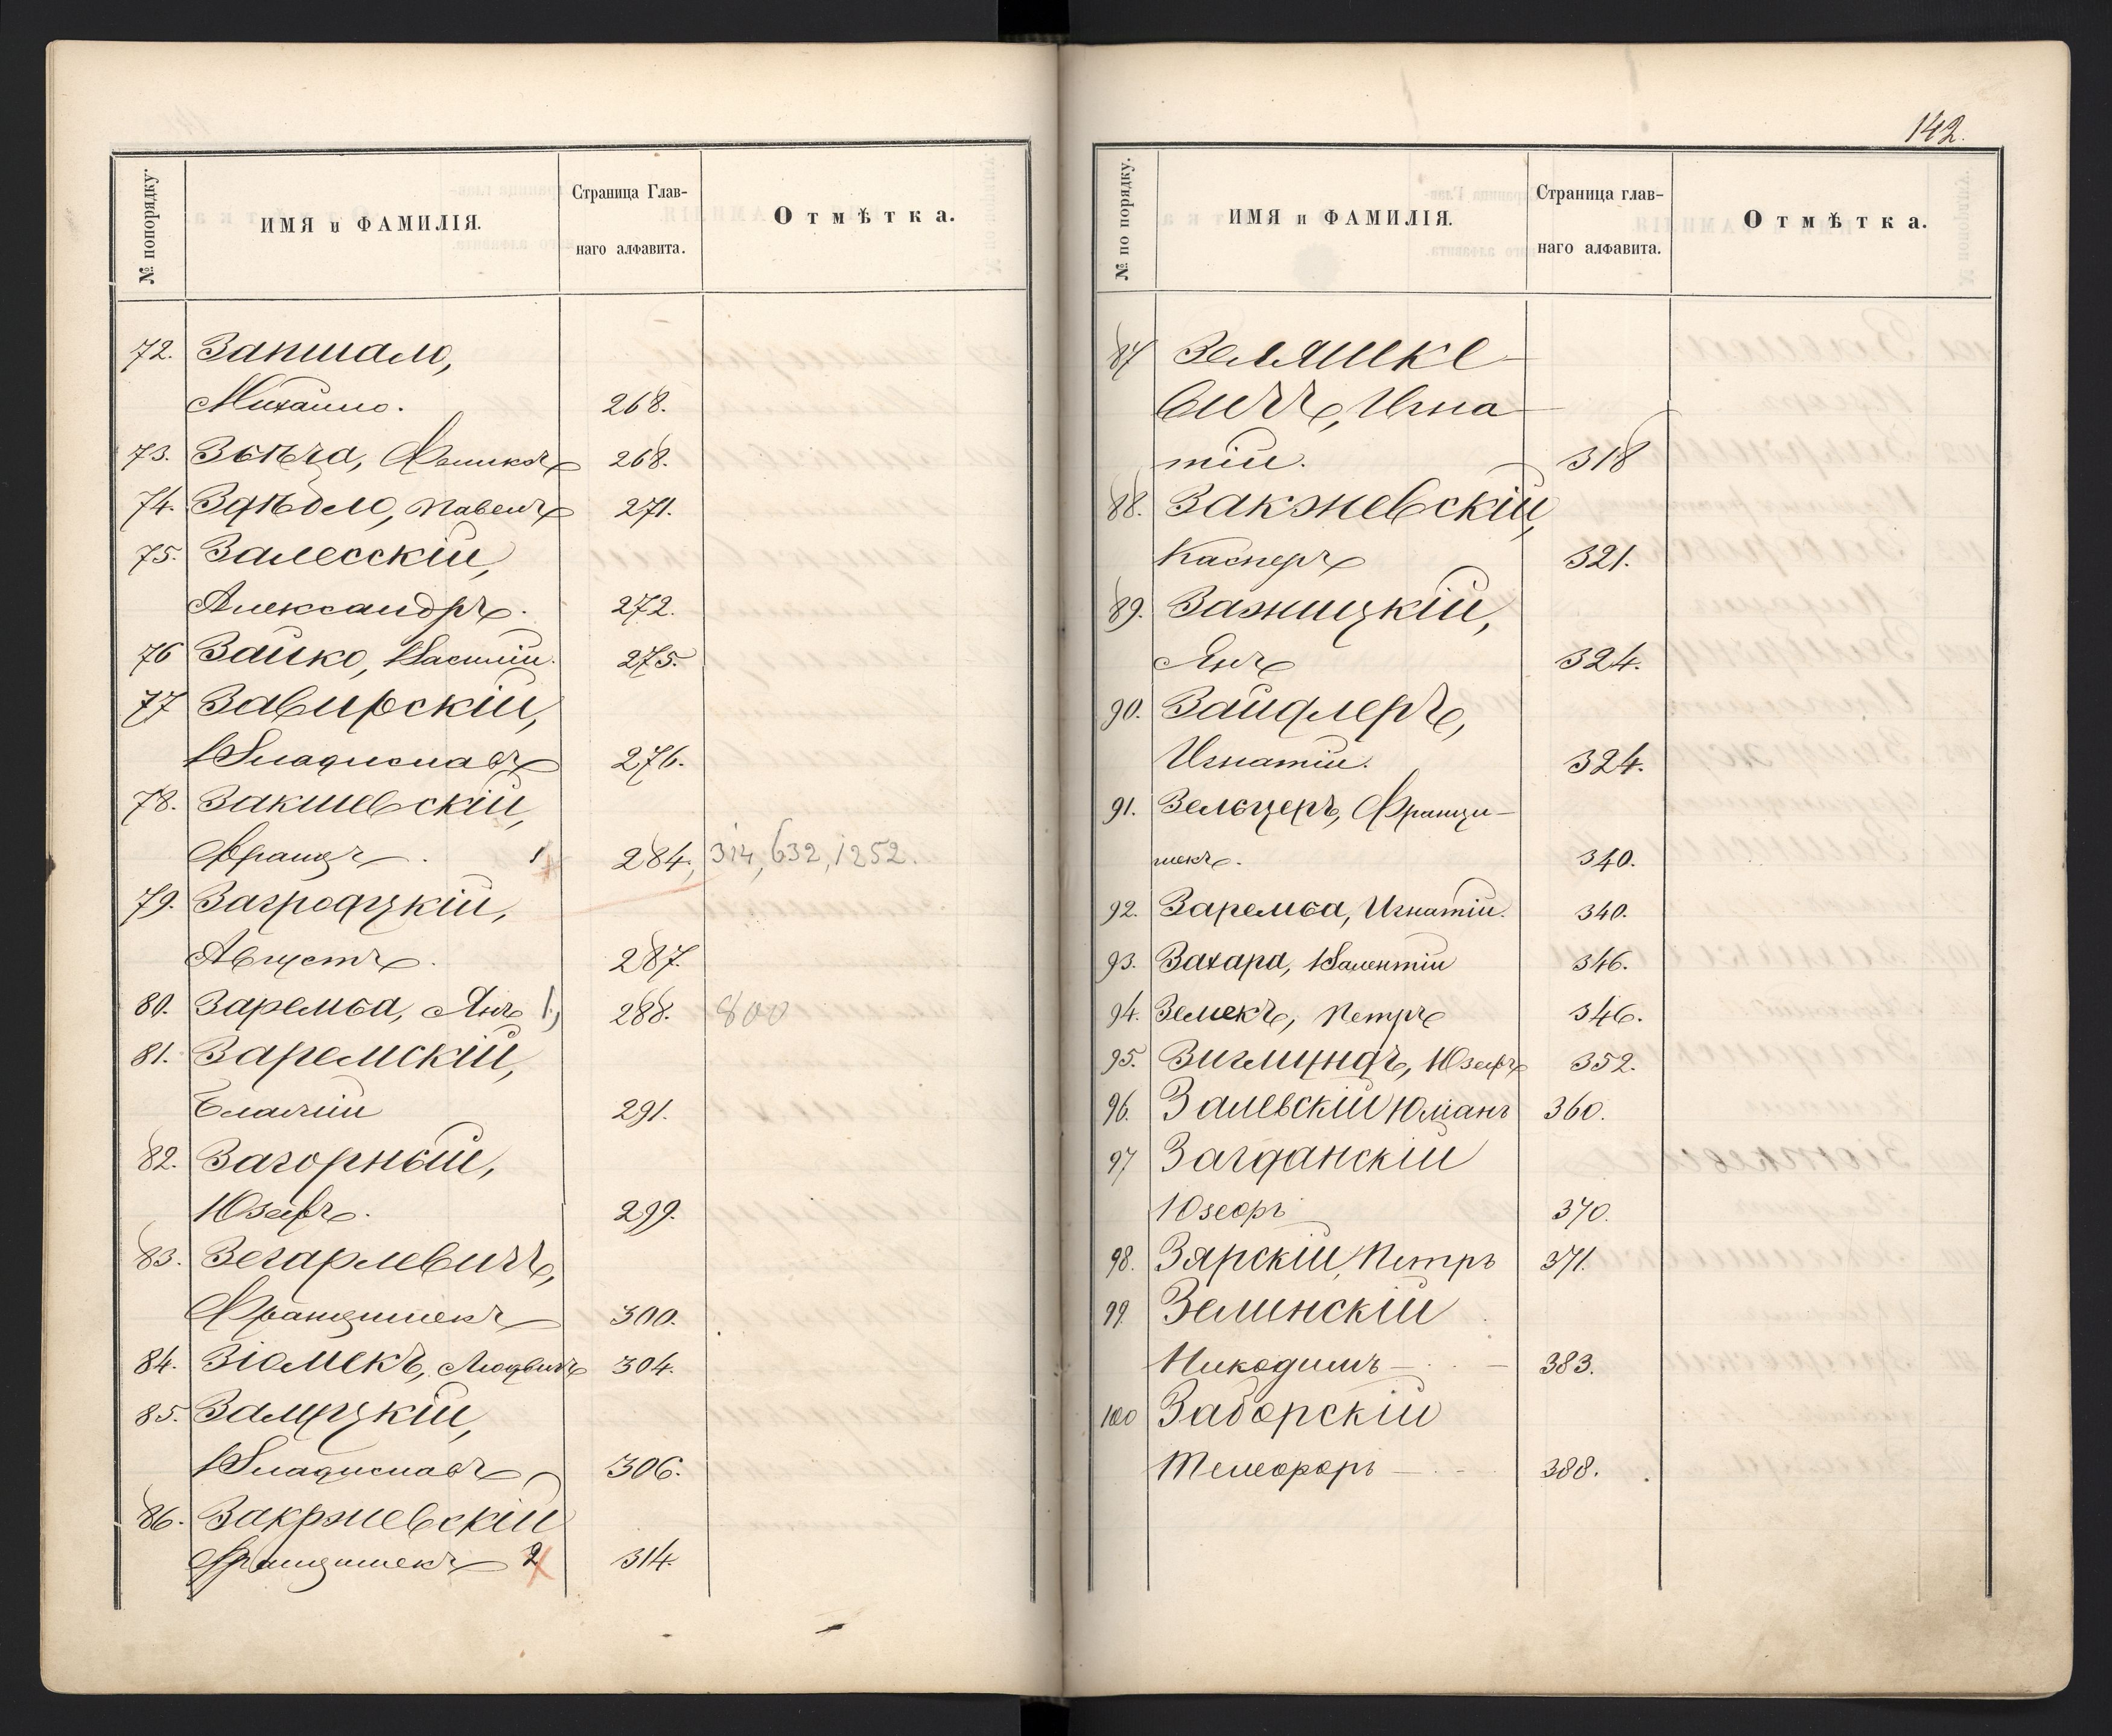 № попорядку.
ИМЯ и ФАМИЛІЯ.
Страница Глав-
наго алфавита.
Отмѣтка.
72. Запшало,
Михайло. 268.
73. Феликсъ 268.
74. Павелъ 271.
75. Залесскій,
Александръ. 272.
76 Зайко, Василій. 275.
77 Завирскій,
Владиславъ 276.
78. Закшевскій,
Францъ. 1 284, 314, 632, 1252.
79. Загродзкій,
Августъ. 287.
80. Заремба, Янъ 1, 288. 800
81. Заремскій,
291.
82. Загорный,
Юзефъ. 299.
83. Зегарлевичъ,
Францишекъ 300.
84. Зіомекъ, Людвигъ 304.
85. Замузкій,
Владиславъ 306.
86. Закржевскій
Францишекъ 2 314.
142.
№ по порядку.
ИМЯ и ФАМИЛІЯ.
Страница глав-
наго алфавита.
Отмѣтка.
87 Земяшке-
вичъ, Игна-
тій. 318
88. Закжевскій,
Касперъ 321.
89. Зажицкій,
Янъ 324.
90. Зайдлеръ,
Игнатій. 324.
91. Зельцеръ, Франци-
шекъ. 340.
92. Заремба, Игнатій. 340.
93. Захара, Валентій 346.
94. Земекъ, Петръ 346.
95. Зигмундъ, Юзефъ 352.
96. Залевскій Юліанъ 360.
97 Загданскій
Юзефъ 370.
98. Зярскій, Петръ 371.
99. Зелинскій
Никодимъ — 383.
100 Заборскій
Телесфоръ — 388.